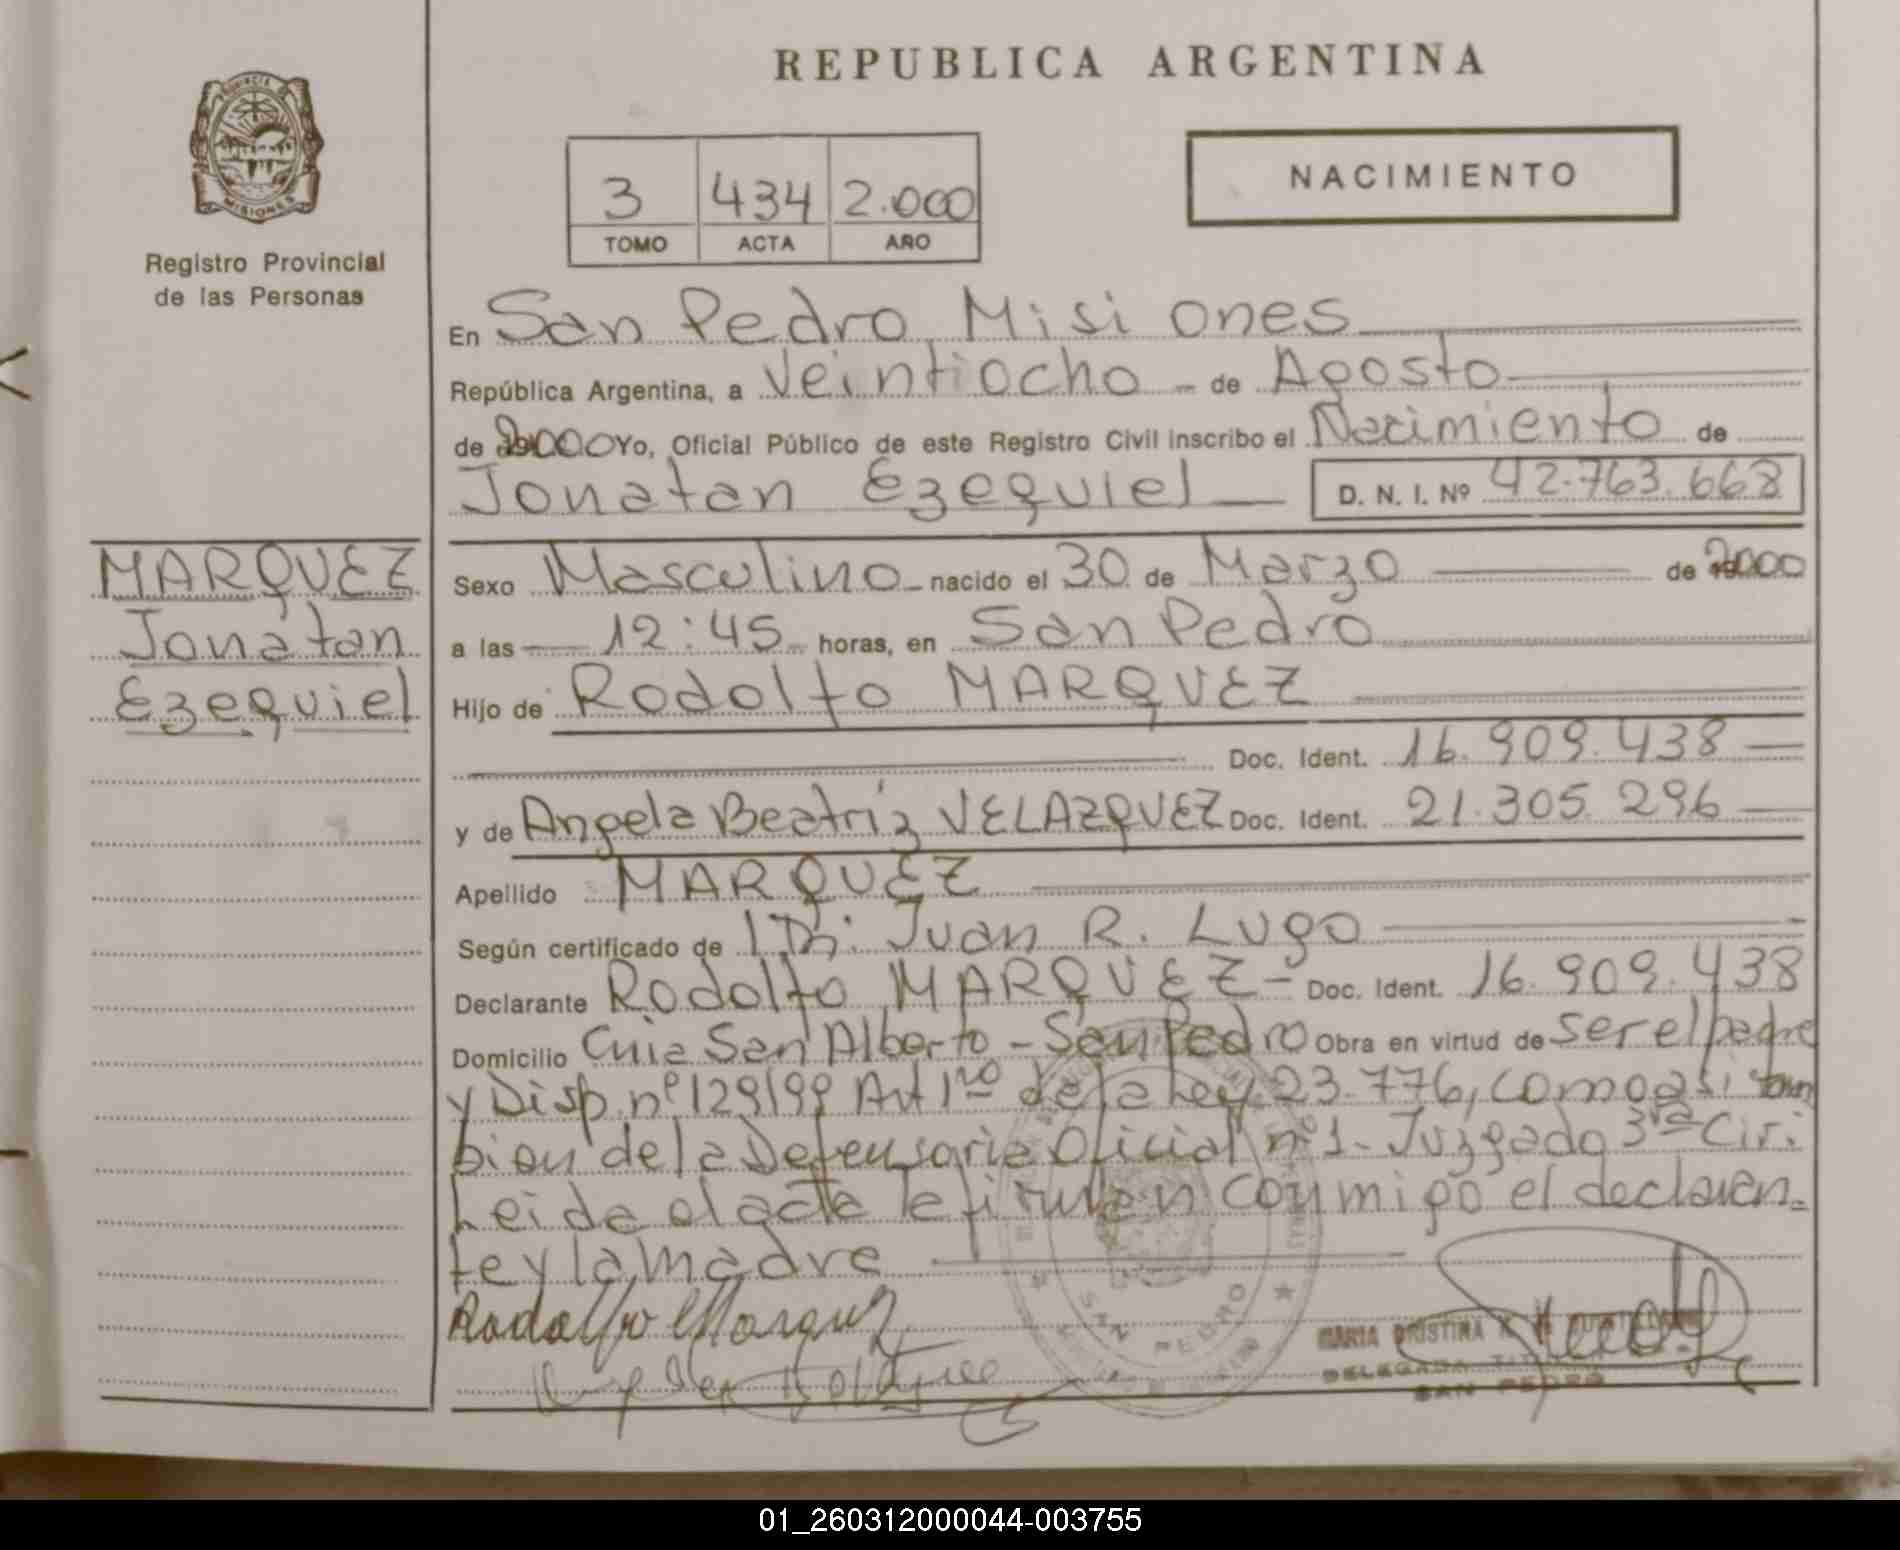 REPUBLICA ARGENTINA
PROVINCIA DE
MISIONES
Registro Provincial
de las Personas
3 434 2.000
TOMO ACTA AÑO
NACIMIENTO
En San Pedro Misiones
República Argentina, a Veintiocho - de Agosto
de 2000 Yo, Oficial Público de este Registro Civil inscribo el Nacimiento de
Jonatan Ezequiel D. N. I. Nº 42.763.668
MARQUEZ
Jonatan
Ezequiel
Sexo Masculino nacido el 30 de Marzo de 2000
a las 12:45 horas, en San Pedro
Hijo de Rodolfo MARQUEZ
Doc. Ident. 16.909.438
y de Angela Beatríz VELAZQUEZ Doc. Ident. 21.305.296
Apellido MARQUEZ
Según certificado de Dr. Juan R. Lugo
Declarante Rodolfo MARQUEZ - Doc. Ident. 16.909.438
Domicilio Cnia San Alberto - San Pedro Obra en virtud de ser el padre
y Disp. nº 129/99 Art 1ro de la Ley 23.776, como asi tam
bien de la Defensoria Oficial nº 1 - Juzgado 3ra Cir.
Leida el acta la firman conmigo el declaran-
te y la madre
Rodolfo Marquez
SAN PEDRO
MARIA CRISTINA
DELEGADA TITULAR
SAN PEDRO
01_260312000044-003755